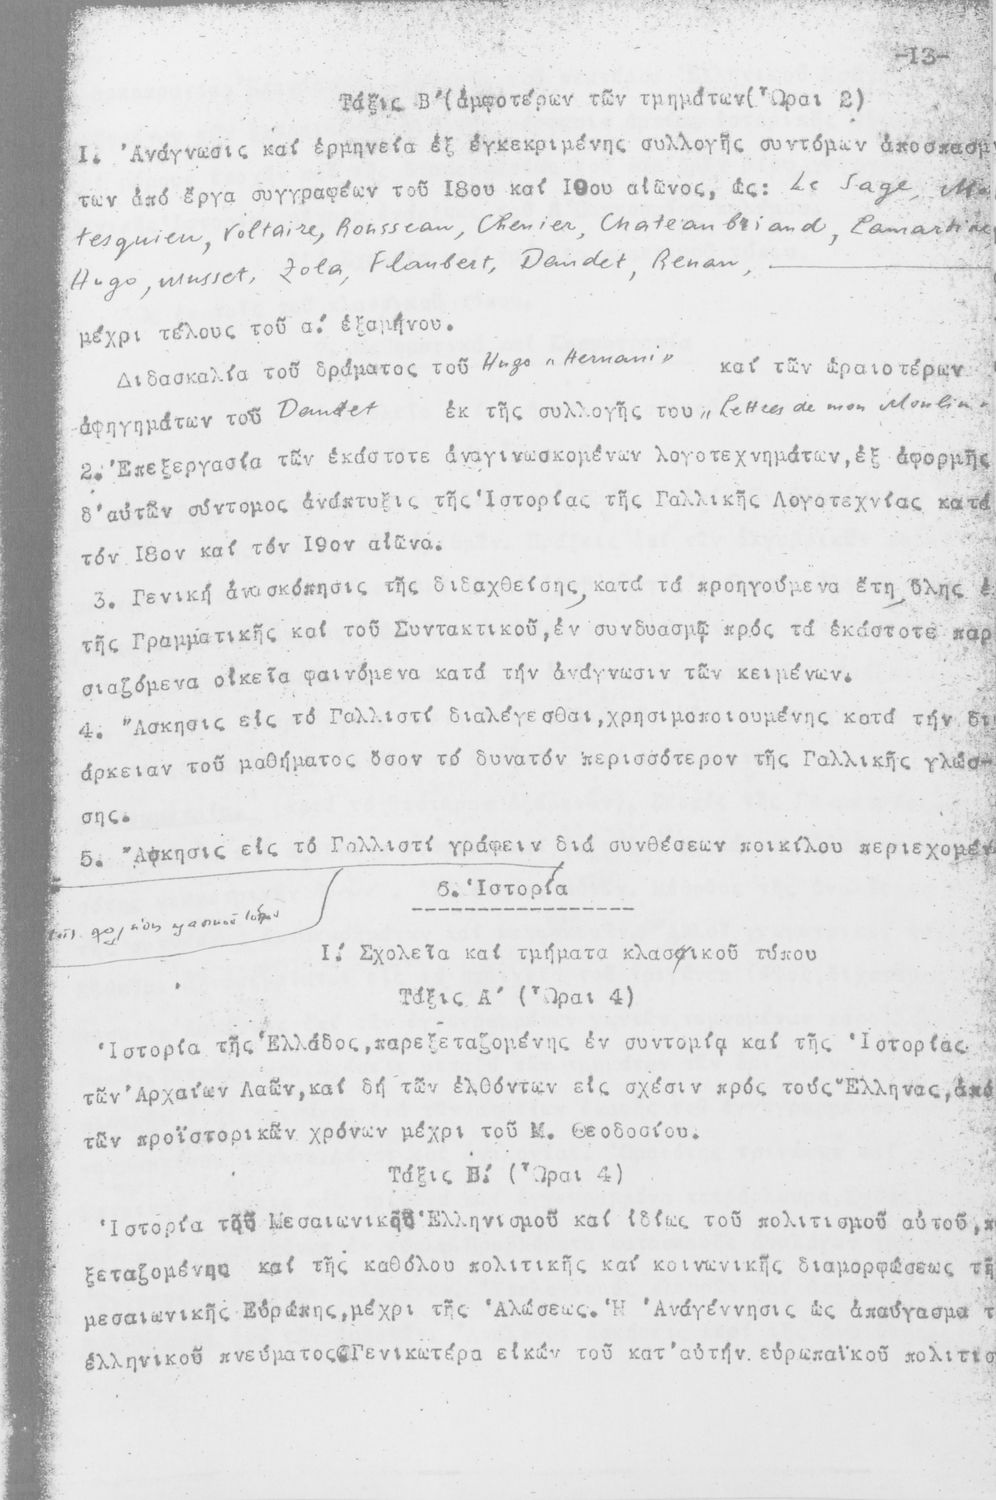 -13-
Τάξις Β΄(ἀμφοτέρων τῶν τμημάτων(Ὧραι 2)
Ι. Ἀνάγνωσις καί ἑρμηνεία ἐξ ἐγκεκριμένης συλλογῆς συντόμων ἀποσπασμ
των ἀπό ἔργα συγγραφέων τοῦ Ι8ου καί Ι9ου αἰῶνος, ὡς: Le Sage, Mo
tesquieu, Voltaire, Rousseau, Chenier, Chateaubriand, Lamartine,
Hugo, Musset, Zola, Flaubert, Daudet, Renan,
μέχρι τέλους τοῦ α΄ ἑξαμήνου.
Διδασκαλία τοῦ δράματος τοῦ Hugo "Hernani" καί τῶν ὡραιοτέρων
ἀφηγημάτων τοῦ Daudet ἐκ τῆς συλλογῆς του "Lettres de mon Moulin"
2. Ἐπεξεργασία τῶν ἑκάστοτε ἀναγινωσκομένων λογοτεχνημάτων, ἐξ ἀφορμῆς
δ'αὐτῶν σύντομος ἀνάπτυξις τῆς Ἱστορίας τῆς Γαλλικῆς Λογοτεχνίας κατά
τόν Ι8ον καί τόν Ι9ον αἰῶνα.
3. Γενική ἀνασκόπησις τῆς διδαχθείσης, κατά τά προηγούμενα ἔτη, ὕλης ἐ
τῆς Γραμματικῆς καί τοῦ Συντακτικοῦ, ἐν συνδυασμῷ πρός τά ἑκάστοτε παρ
σιαζόμενα οἰκεῖα φαινόμενα κατά τήν ἀνάγνωσιν τῶν κειμένων.
4. Ἄσκησις εἰς τό Γαλλιστί διαλέγεσθαι, χρησιμοποιουμένης κατά τήν δι
άρκειαν τοῦ μαθήματος ὅσον τό δυνατόν περισσότερον τῆς Γαλλικῆς γλώσ-
σης.
5. Ἄσκησις εἰς τό Γαλλιστί γράφειν διά συνθέσεων ποικίλου περιεχομέν
6. Ἱστορία
κλασικοῦ τύπου
Ι. Σχολεῖα καί τμήματα κλασικοῦ τύπου
Τάξις Α΄ (Ὧραι 4)
Ἱστορία τῆς Ἑλλάδος, παρεξεταζομένης ἐν συντομίᾳ καί τῆς Ἱστορίας
τῶν Ἀρχαίων Λαῶν, καί δή τῶν ἐλθόντων εἰς σχέσιν πρός τούς Ἕλληνας, ἀπό
τῶν προϊστορικῶν χρόνων μέχρι τοῦ Μ. Θεοδοσίου.
Τάξις Β΄ (Ὧραι 4)
Ἱστορία τοῦ Μεσαιωνικοῦ Ἑλληνισμοῦ καί ἰδίως τοῦ πολιτισμοῦ αὐτοῦ, π
ξεταζομένης καί τῆς καθόλου πολιτικῆς καί κοινωνικῆς διαμορφώσεως τῆ
μεσαιωνικῆς Εὐρώπης, μέχρι τῆς Ἁλώσεως. Ἡ Ἀναγέννησις ὡς ἀπαύγασμα τ
ἑλληνικοῦ πνεύματος. Γενικωτέρα εἰκών τοῦ κατ'αὐτήν εὐρωπαϊκοῦ πολιτισ